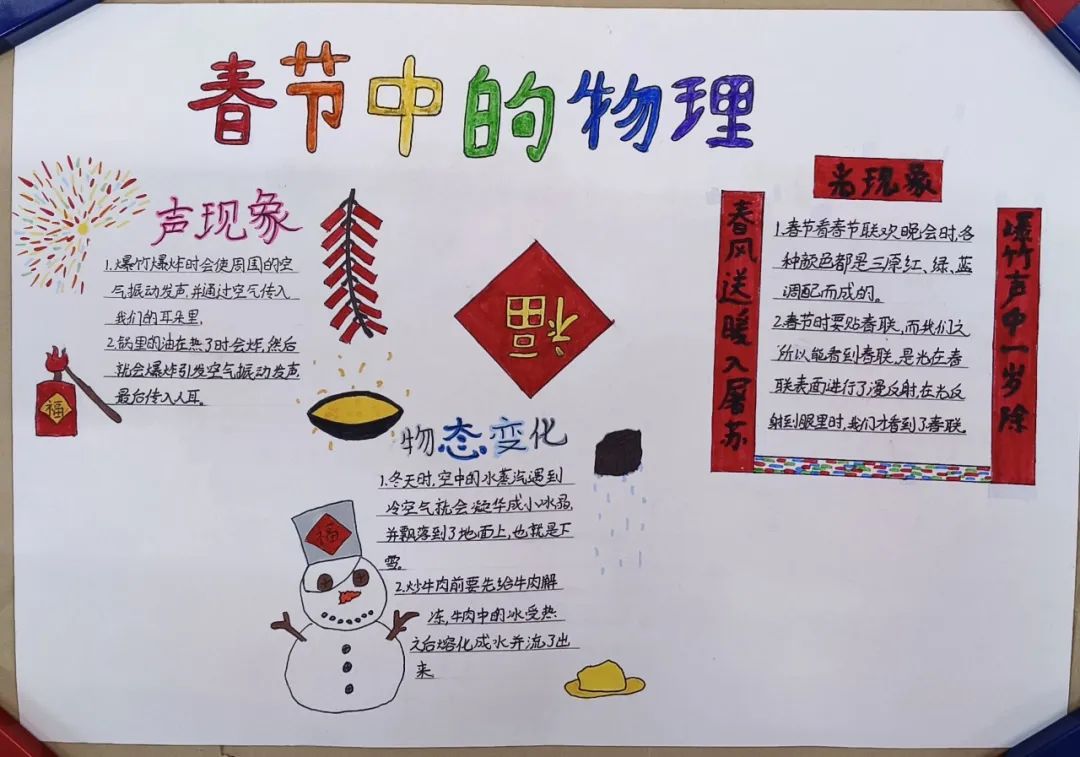 春节中的物理
声现象
1.爆竹爆炸时会使周围的空
气振动发声,并通过空气传入
我们的耳朵里,
2.锅里的油在热了时会炸,然后
就会爆炸引发空气振动发声
最后传入人耳。
福
福
物态变化
1.冬天时,空中的水蒸汽遇到
冷空气就会凝华成小冰晶,
并飘落到了地面上,也就是下
雪。
2.炒牛肉前要先给牛肉解
冻,牛肉中的冰受热
之后熔化成水并流了出
来
福
光现象
春风送暖入屠苏
1.春节看春节联欢晚会时,各
种颜色都是三原红、绿、蓝
调配而成的。
2.春节时要贴春联,而我们之
所以能看到春联,是光在春
联表面进行了漫反射,在光反
射到眼里时,我们才看到了春联
爆竹声中一岁除